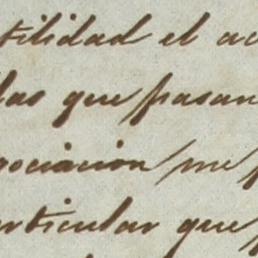 tilidad el ac
las que pasan
gociacion me p
articular que p